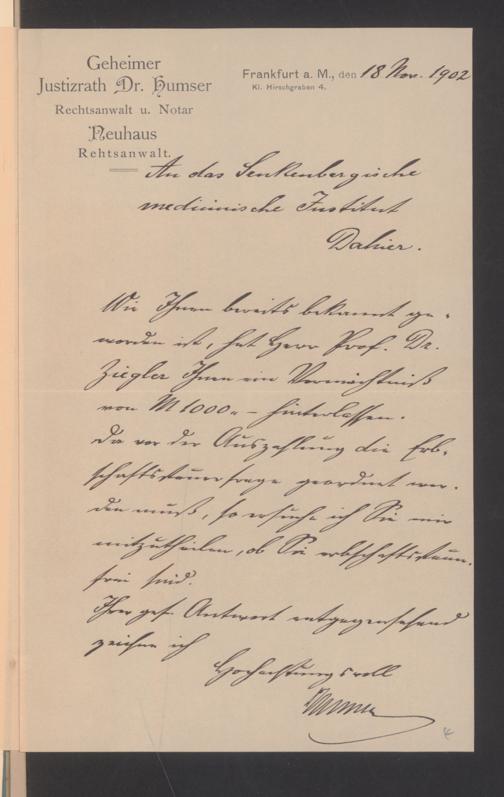 Geheimer
Justizrath Dr. Humser
Rechtsanwalt u. Notar
Neuhaus
Rehtsanwalt.
Frankfurt a. M., den 18 Nov. 1902
Kl. Hirschgraben 4.
An das Senkenbergische
medicinische Institut
Dahier.
Wie Ihnen bereits bekannt ge-
worden ist, hat Herr Prof. Dr.
Ziegler Ihnen ein Vermächtniß
von M 1000.- hinterlassen.
Da vor der Auszahlung die Erb-
schaftssteuerfrage geordnet wer-
den muß, so ersuche ich Sie mir
mitzutheilen, ob Sie erbschaftssteuer-
frei sind.
Ihrer gef. Antwort entgegensehend
zeichne ich
Hochachtungsvoll
Humser